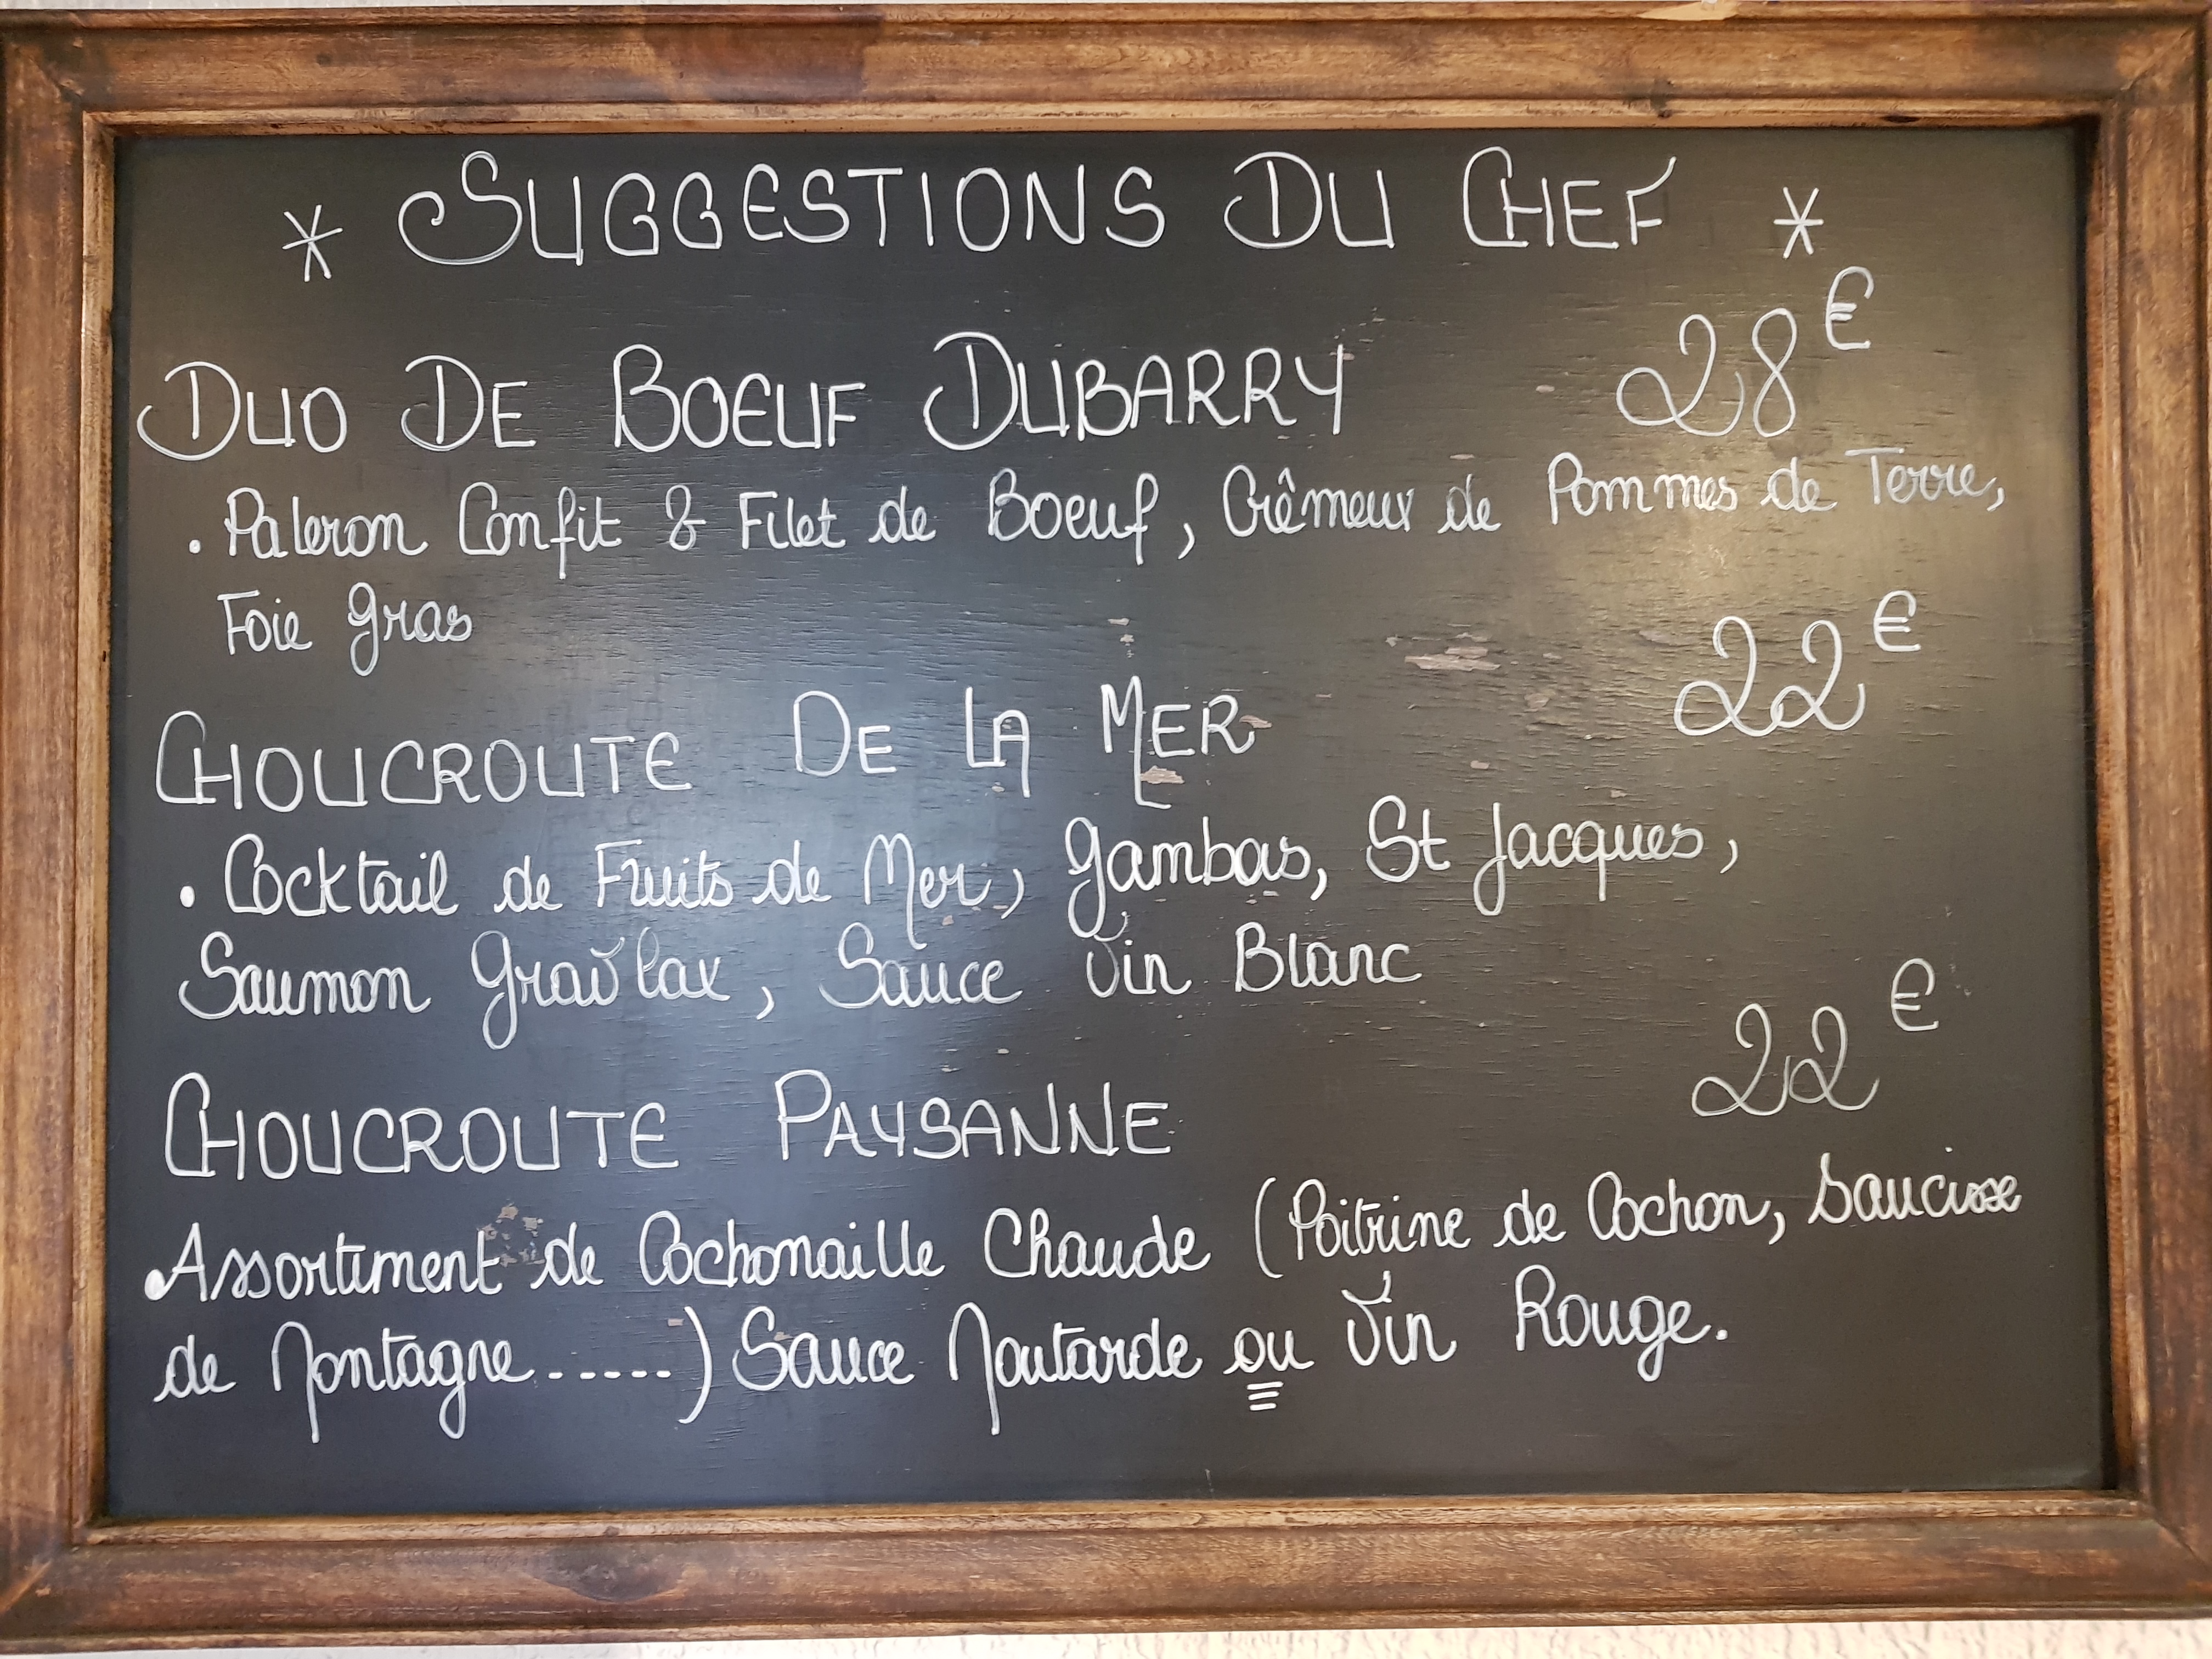 * SUGGESTIONS DU CHEF *
DUO DE BOEUF DUBARRY 28€
. Paleron Confit & Filet de Boeuf, Crêmeux de Pommes de Terre,
Foie gras
CHOUCROUTE DE LA MER 22€
. Cocktail de Fruits de Mer, gambas, St Jacques,
Saumon gravlax, Sauce Vin Blanc
CHOUCROUTE PAYSANNE 22€
. Assortiment de Cochonaille Chaude (Poitrine de Cochon, Saucisse
de Montagne.....) Sauce Moutarde ou Vin Rouge.